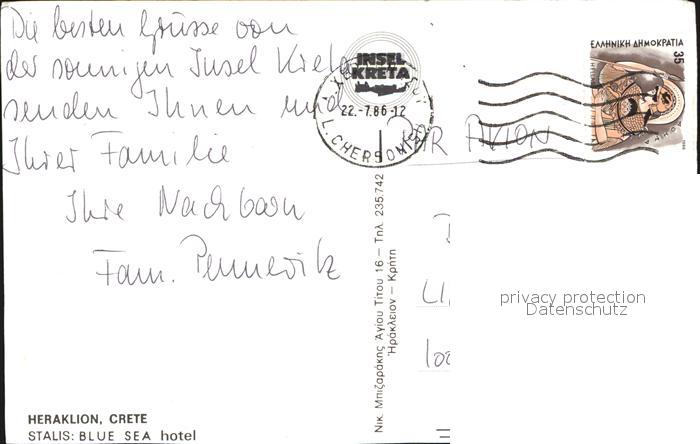 Die besten Grüsse von
der sonnigen Insel Kreta
senden Ihnen und
Ihrer Familie
Ihre Nachbarn
Fam.
HERAKLION, CRETE
STALIS: BLUE SEA hotel
INSEL
KRETA
22.-7.86-12
L. CHERSONISOU
PAR AVION
ΕΛΛΗΝΙΚΗ ΔΗΜΟΚΡΑΤΙΑ
35
Νικ. Μπιζαράκης Αγίου Τίτου 16 — Τηλ. 235.742
Ηράκλειον — Κρήτη
privacy protection
Datenschutz